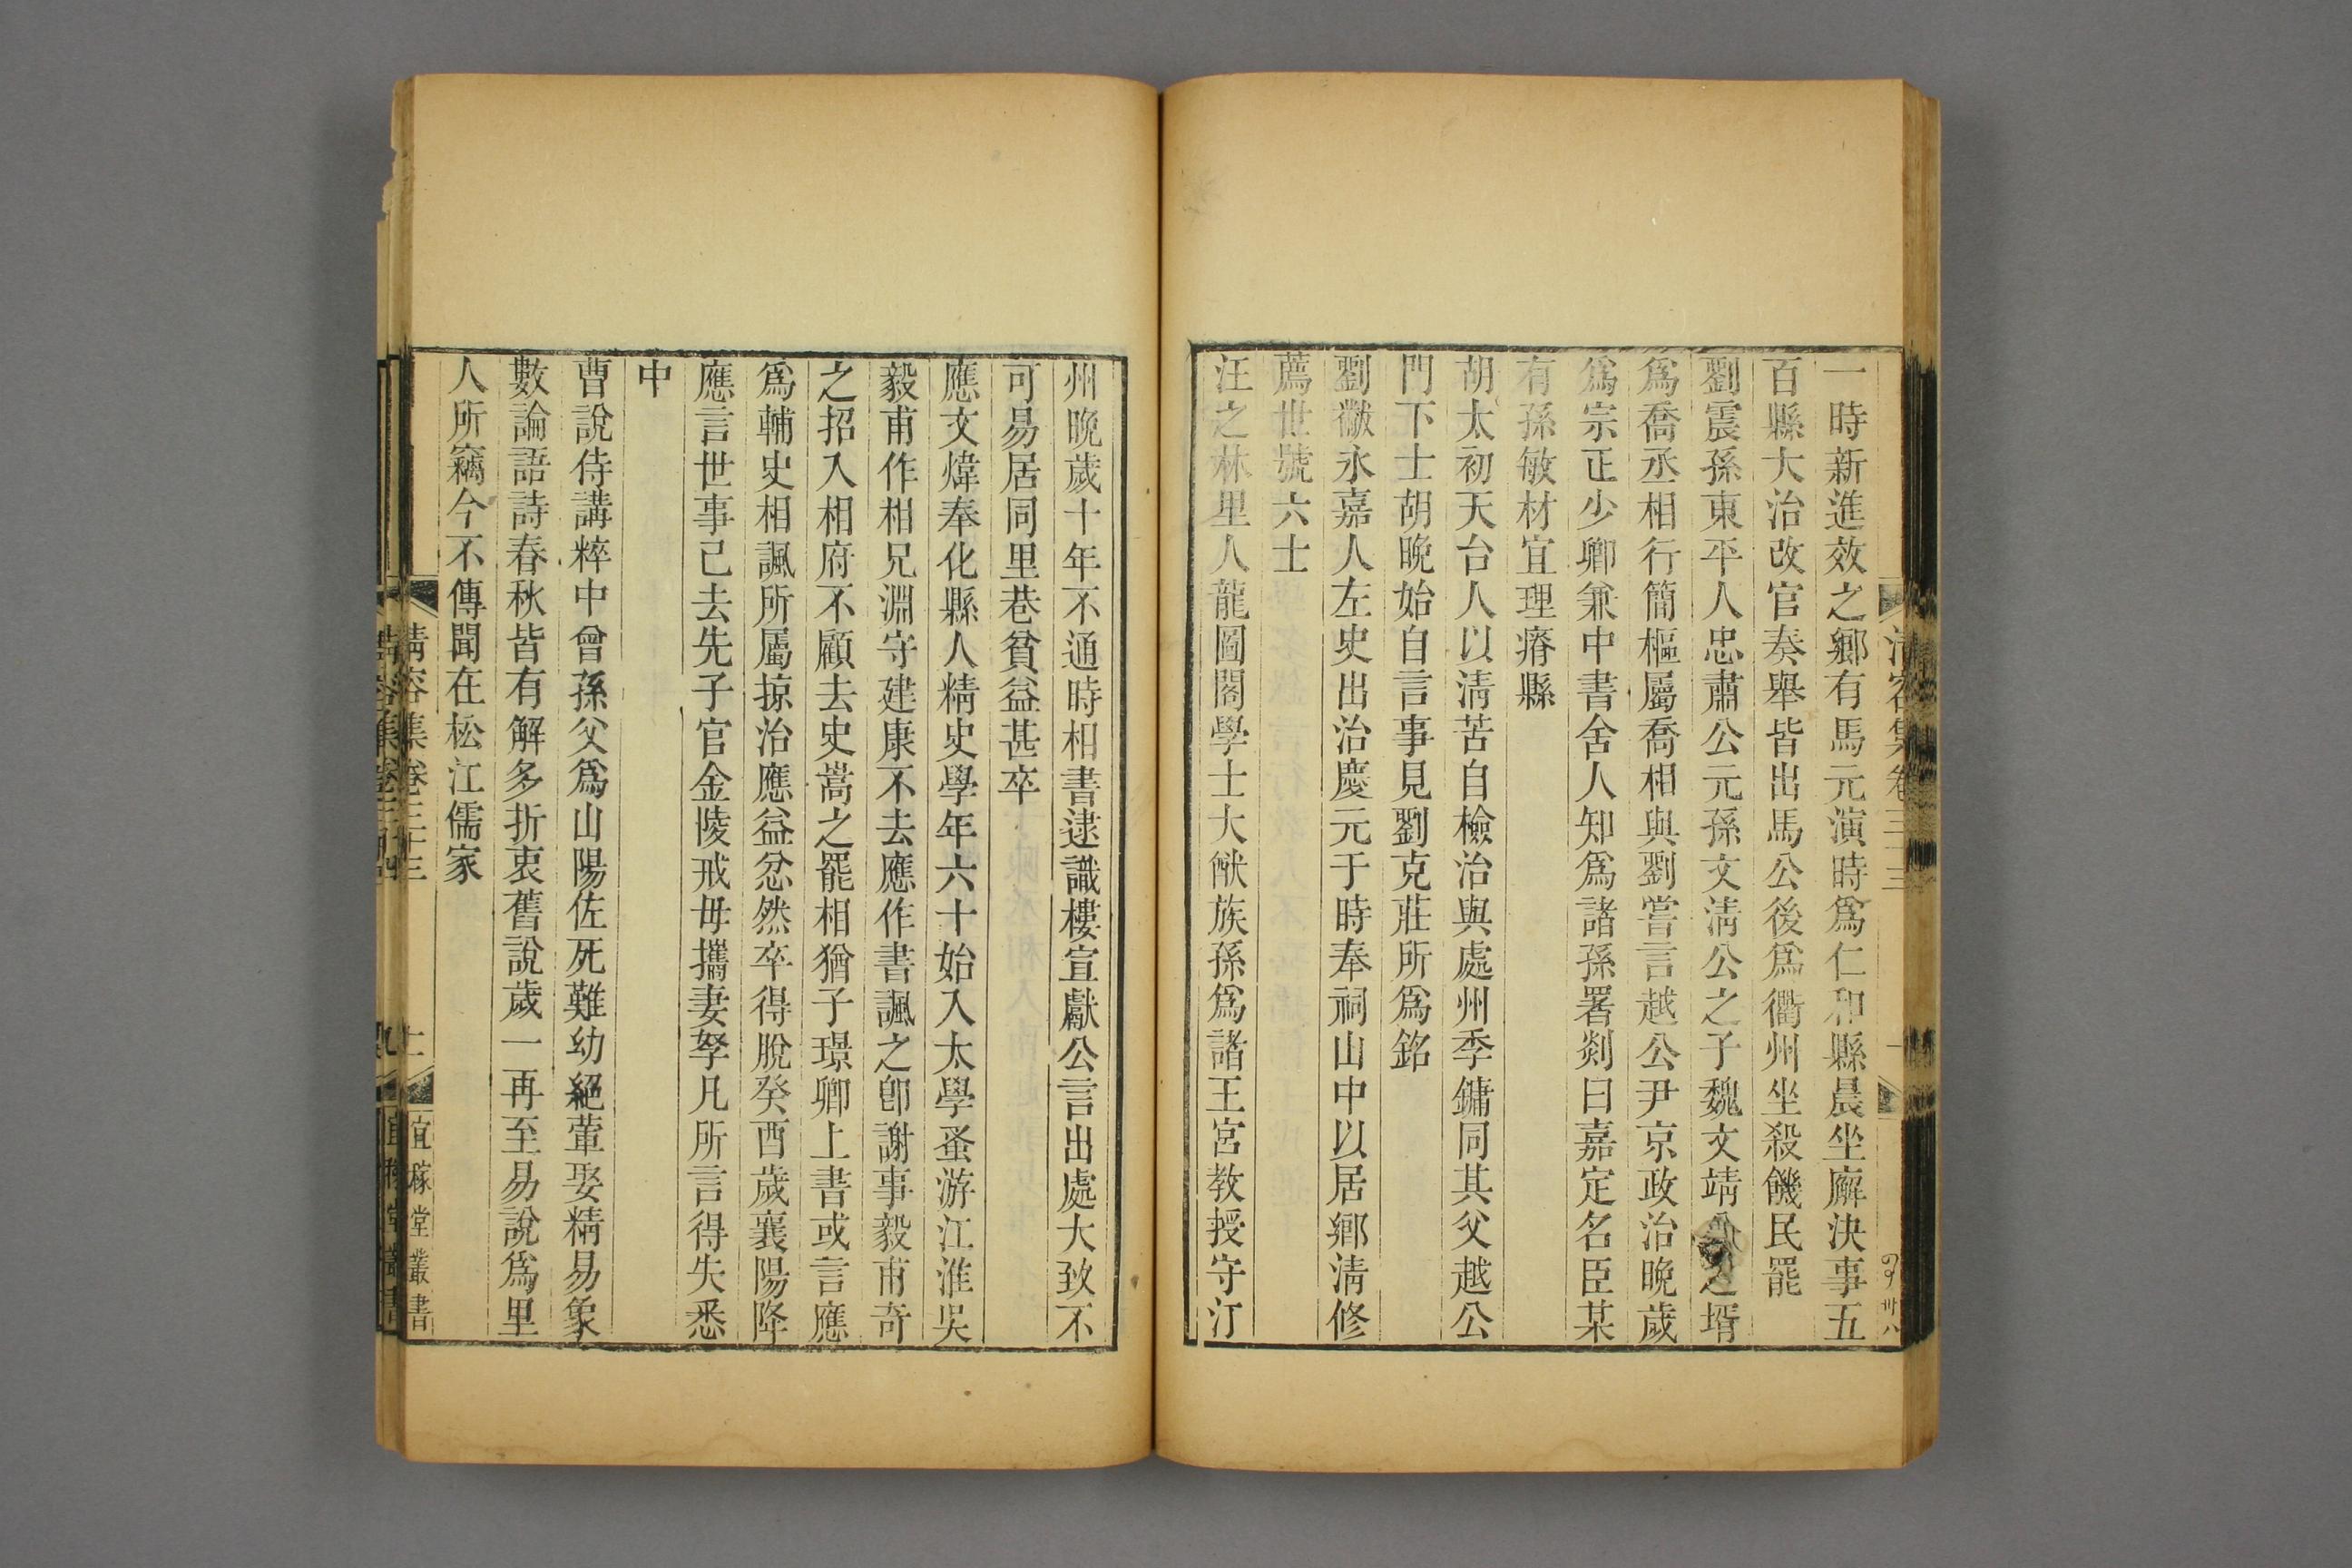 清容集卷三十三
一時新進效之鄉有馬元演時爲仁和縣晨坐廨決事五
百縣大治改官奏舉皆出馬公後爲衢州坐殺饑民罷
劉震孫東平人忠肅公元孫文淸公之子魏文靖之壻
爲喬丞相行簡樞屬喬相與劉嘗言越公尹京政治晚歲
爲宗正少卿兼中書舍人知爲諸孫署剡曰嘉定名臣某
有孫敏材宜理瘠縣
胡太初天台人以淸苦自檢治與處州季鏞同其父越公
門下士胡晚始自言事見劉克莊所爲銘
劉黻永嘉人左史出治慶元于時奉祠山中以居鄉淸修
薦世號六士
汪之林里人龍圖閣學士大猷族孫爲諸王宮教授守汀
州晚歲十年不通時相書逮識樓宣獻公言出處大致不
可易居同里巷貧益甚卒
應文煒奉化縣人精史學年六十始入太學蚤游江淮吳
毅甫作相兄淵守建康不去應作書諷之卽謝事毅甫奇
之招入相府不顧去史嵩之罷相猶子璟卿上書或言應
爲輔史相諷所屬掠治應益忿然卒得脫癸酉歲襄陽降
應言世事已去先子官金陵戒毋攜妻孥凡所言得失悉
中
曹說侍講粹中曾孫父爲山陽佐死難幼絕葷娶精易象
數論語詩春秋皆有解多折衷舊說歲一再至易說爲里
人所竊今不傳聞在松江儒家
清容集卷三十三
二
宜稼堂叢書